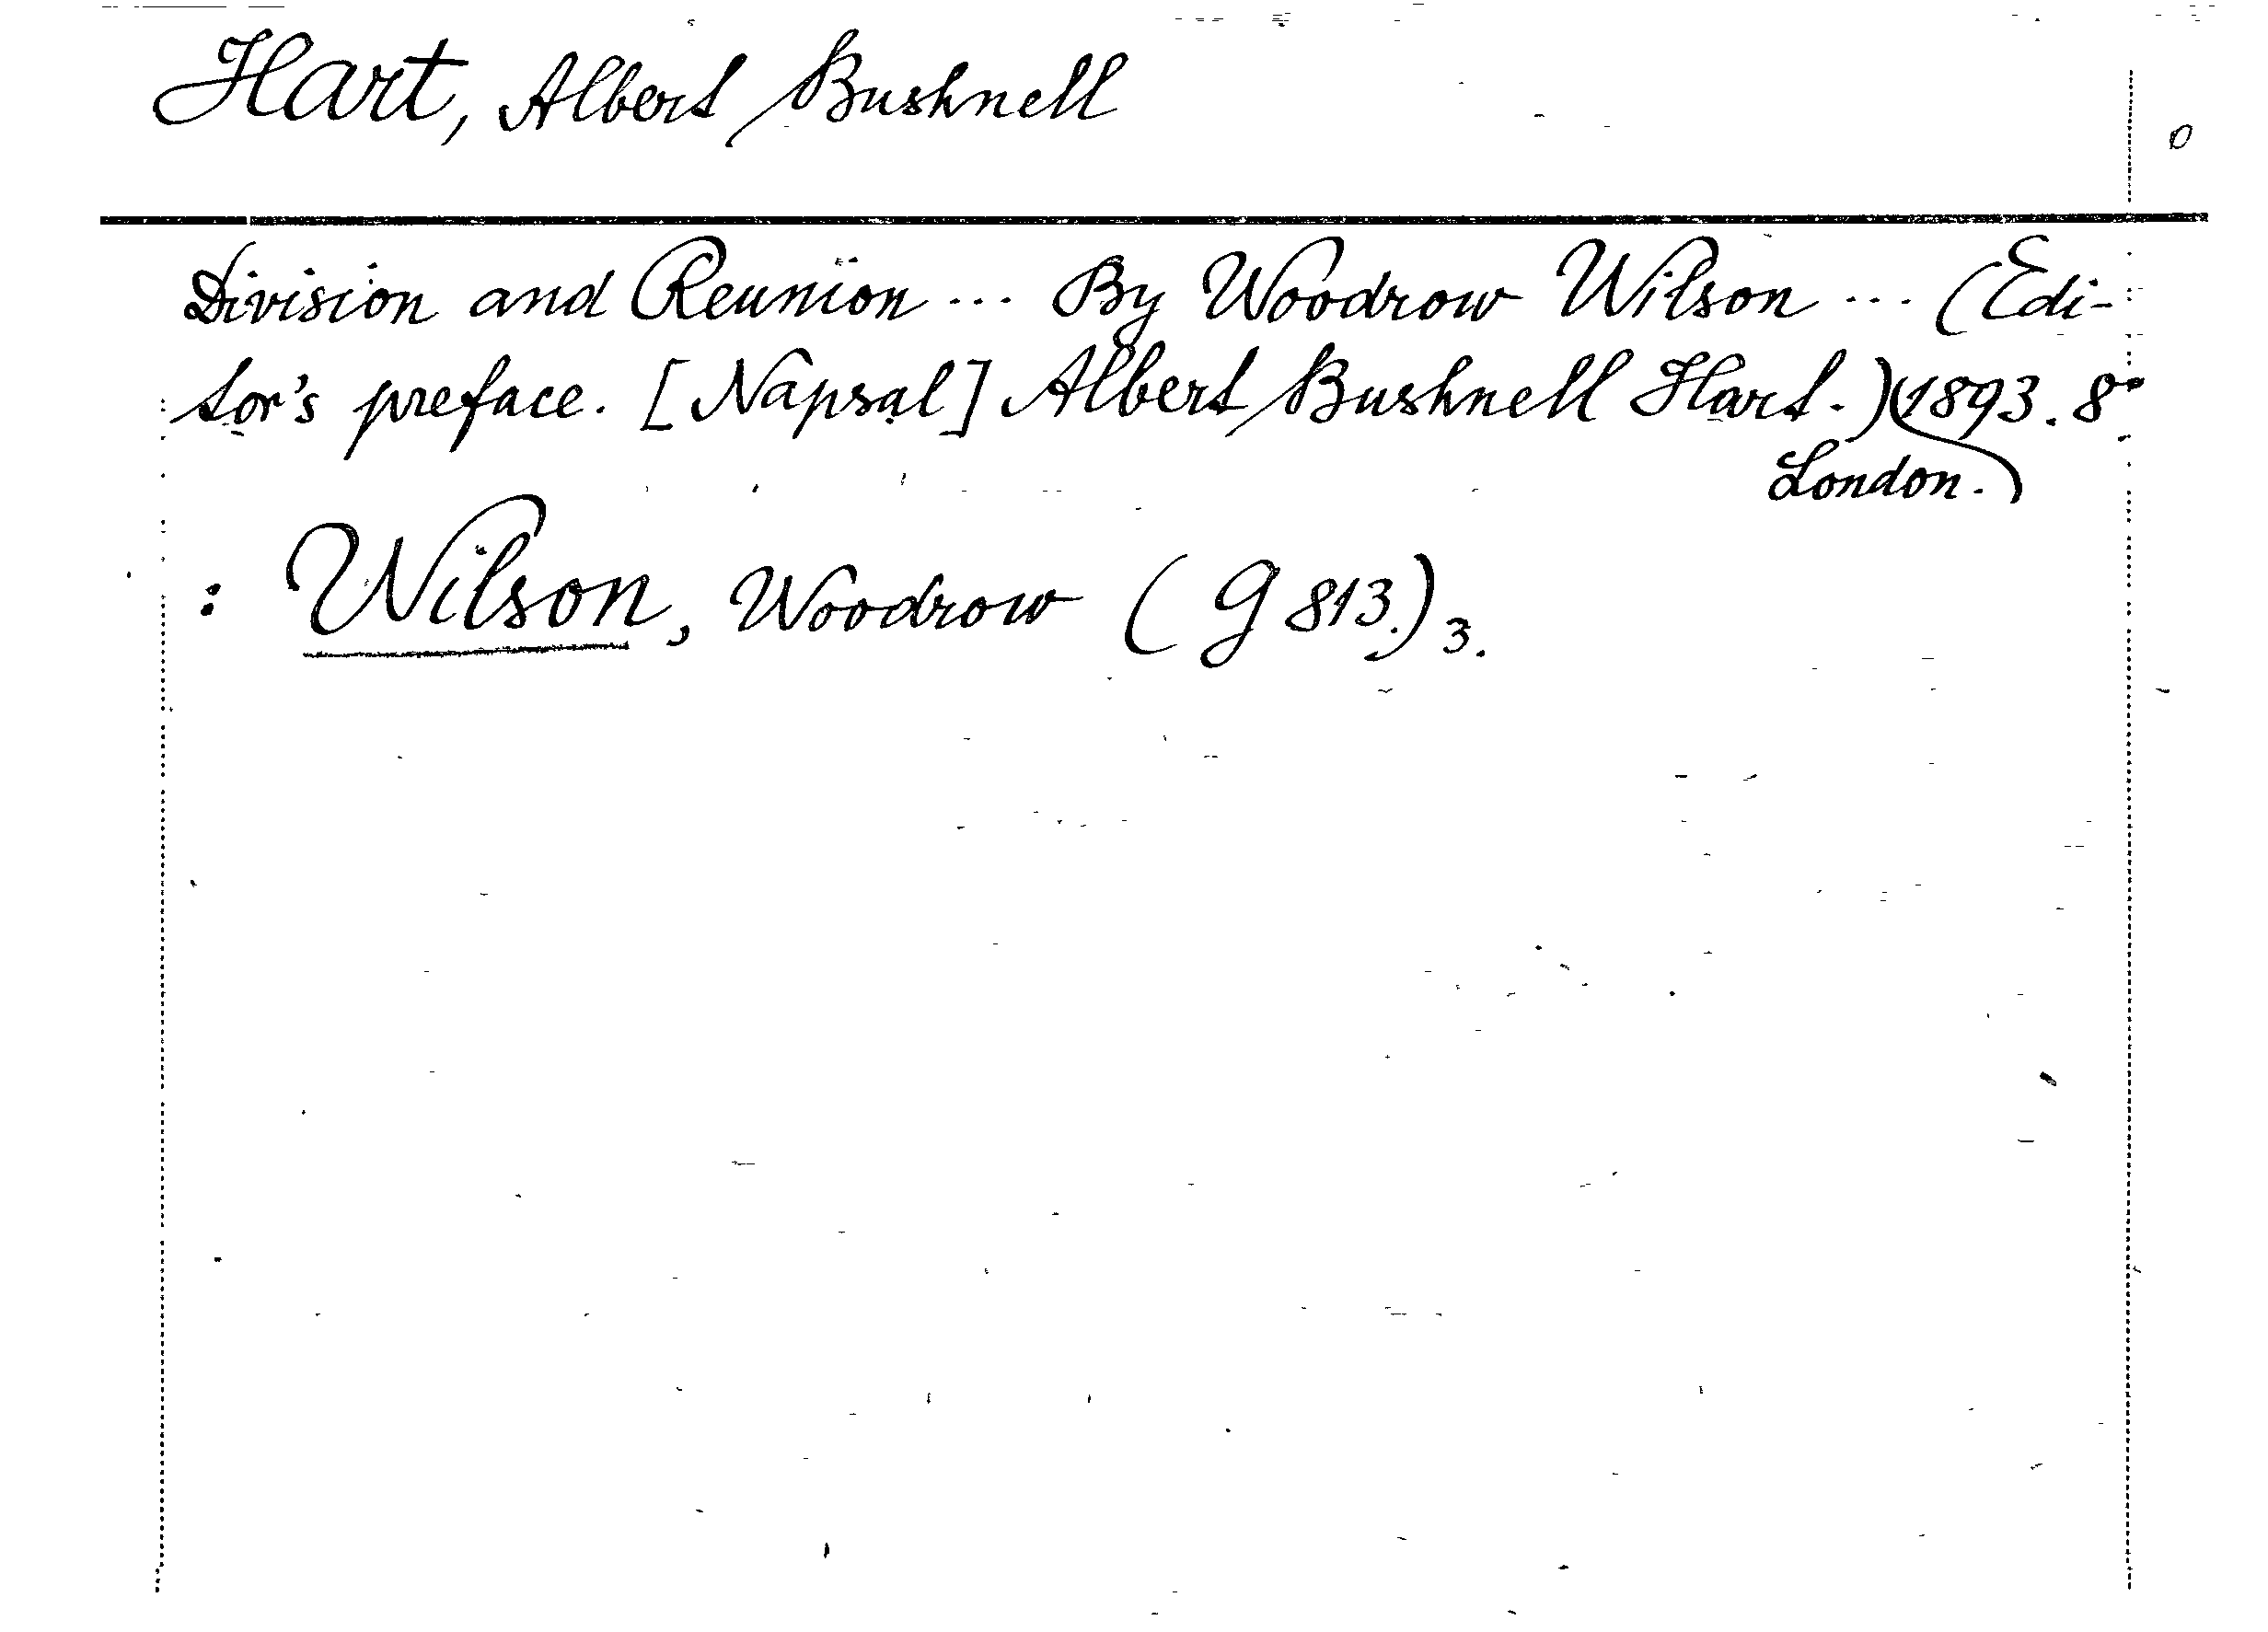 Hart, Albert Bushnell
0
Division and Reunion ... By Woodrow Wilson ... (Edi-
tor's preface. [Napsal] Albert Bushnell Hart.) (1893. 8°.
London.)
: Wilson, Woodrow (G 813.) 3.